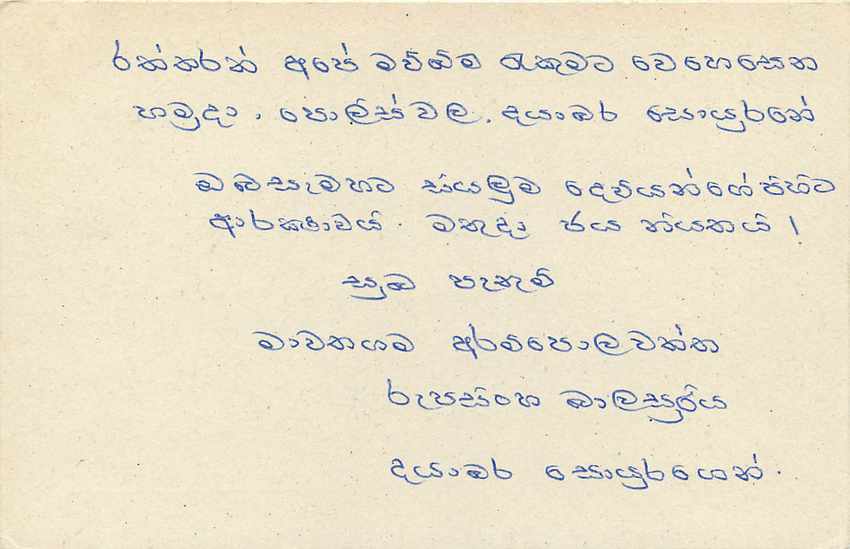 රන්තරන් අපේ මව්බිම රැකුමට වෙහෙසෙන
හමුදා, පොලිස්වල, දයාබර සොයුරනේ
ඔබසැමහට සියලුම දෙවියන්ගේ පිහිට
ආරක්ෂාවයි. මතුදා ජය නියතයි!
සුබ පැතුම්
මාවතගම අරම්පොලවත්ත
රූපසිංහ බාලසූරිය
දයාබර සොයුරගෙන්.